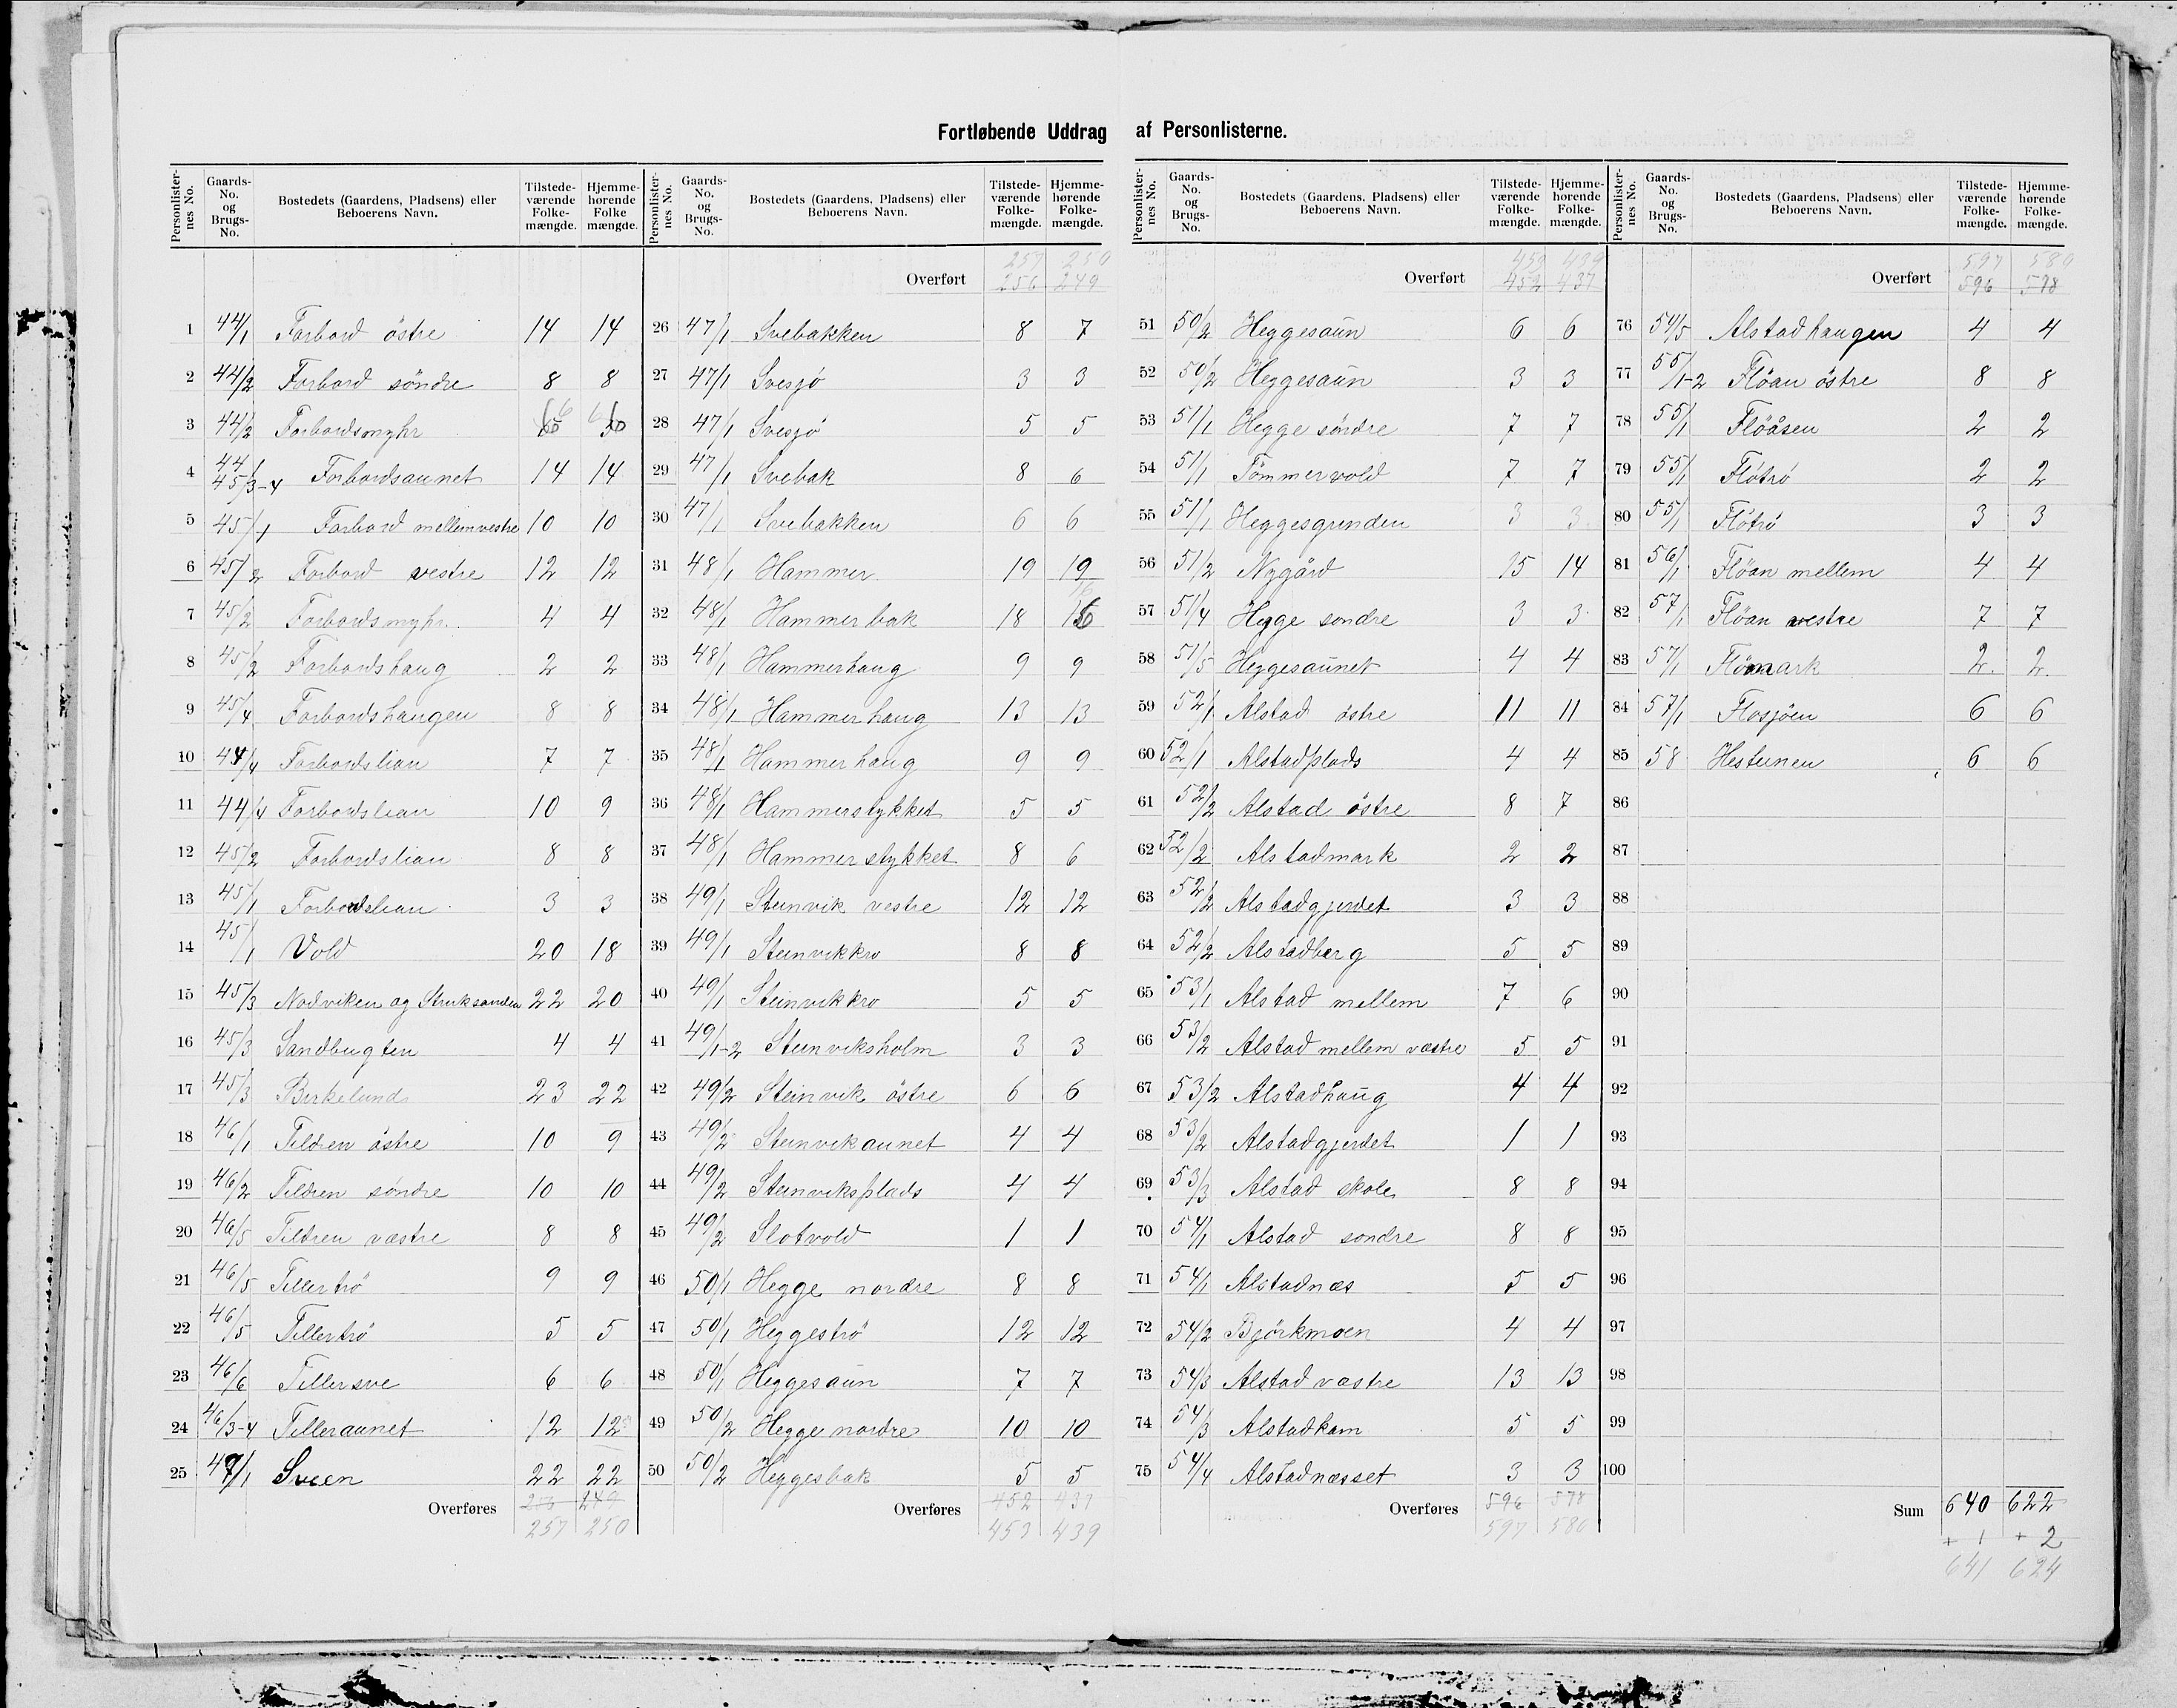 Fortløbende Uddrag af Personlisterne.
Personlisternes No. Gaards-No. og Brugs-No. Bostedets (Gaardens, Pladsens) eller Beboerens Navn. Tilstedeværende Folkemængde. Hjemmehørende Folkemængde.
1 44/1 Forbord östre 14 14
2 44/2 Forbord söndre 8 8
3 44/2 Forbordsmyhr 6 6
4 44/1 45/3-4 Forbordsaunet 14 14
5 45/1 Forbord mellemvestre 10 10
6 45/2 Forbord vestre 12 12
7 45/2 Forbordsmyhr. 4 4
8 45/2 Forbordshaug 2 2
9 45/4 Forbordshaugen 8 8
10 44/4 Forbordslian 7 7
11 44/4 Forbordslian 10 9
12 45/2 Forbordslian 8 8
13 45/1 Forbordslian 3 3
14 45/1 Vold 20 18
15 45/3 Nodviken og 22 20
16 45/3 Sandbugten 4 4
17 45/3 Birkelund 23 22
18 46/1 Tildren östre 10 9
19 46/2 Tildren söndre 10 10
20 46/5 Tildren væstre 8 8
21 46/5 Tillertrö 9 9
22 46/5 Tillertrö 5 5
23 46/6 Tillersve 6 6
24 46/3-4 Tilleraunet 12 12
25 47/1 Sveen 22 22
Overføres 249
257 250
Personlisternes No. Gaards-No. og Brugs-No. Bostedets (Gaardens, Pladsens) eller Beboerens Navn. Tilstedeværende Folkemængde. Hjemmehørende Folkemængde.
257 250
Overført 256 249
26 47/1 Svebakken 8 7
27 47/1 Svesjö 3 3
28 47/1 Svesjö 5 5
29 47/1 Svebak 8 6
30 47/1 Svebakken 6 6
31 48/1 Hammer 19 19
32 48/1 Hammerbak 18 16
33 48/1 Hammerhaug 9 9
34 48/1 Hammerhaug 13 13
35 48/1 Hammerhaug 9 9
36 48/1 Hammerstykket 5 5
37 48/1 Hammerstykket 8 6
38 49/1 Steinvik vestre 12 12
39 49/1 Steinvikkro 8 8
40 49/1 Steinvikkro 5 5
41 49/1-2 Steinviksholm 3 3
42 49/2 Steinvik östre 6 6
43 49/2 Steinvikaunet 4 4
44 49/2 Steinviksplads 4 4
45 49/2 Slotvold 1 1
46 50/1 Hegge nordre 8 8
47 50/1 Heggeströ 12 12
48 50/1 Heggesaun 7 7
49 50/2 Hegge nordre 10 10
50 50/2 Heggesbak 5 5
Overføres 452 437
453 439
Personlisternes No. Gaards-No. og Brugs-No. Bostedets (Gaardens, Pladsens) eller Beboerens Navn. Tilstedeværende Folkemængde. Hjemmehørende Folkemængde.
453 439
Overført 452 437
51 50/2 Heggesaun 6 6
52 50/2 Heggesaun 3 3
53 51/1 Hegge söndre 7 7
54 51/1 Tömmervold 7 7
55 51/1 Heggesgrinden 3 3
56 51/2 Nygård 15 14
57 51/4 Hegge söndre 3 3
58 51/5 Heggesaunet 4 4
59 52/1 Alstad östre 11 11
60 52/1 Alstadplads 4 4
61 52/2 Alstad östre 8 7
62 52/2 Alstadmark 2 2
63 52/2 Alstadgjerdet 3 3
64 52/2 Alstadberg 5 5
65 53/1 Alstad mellem 7 6
66 53/2 Alstad mellem væstre 5 5
67 53/2 Alstadhaug 4 4
68 53/2 Alstadgjerdet 1 1
69 53/3 Alstad skole 8 8
70 54/1 Alstad sondre 8 8
71 54/1 Alstadnæs 5 5
72 54/2 Björkmoen 4 4
73 54/3 Alstad væstre 13 13
74 54/3 Alstadkam 5 5
75 54/4 Alstadnæsset 3 3
Overføres 596 578
597 580
Personlisternes No. Gaards-No. og Brugs-No. Bostedets (Gaardens, Pladsens) eller Beboerens Navn. Tilstedeværende Folkemængde. Hjemmehørende Folkemængde.
597 580
Overført 596 578
76 54/5 Alstadhaugen 4 4
77 55/1-2 Flöan östre 8 8
78 55/1 Flöåsen 2 2
79 55/1 Flötrö 2 2
80 55/1 Flötrö 3 3
81 56/1 Flöan mellem 4 4
82 57/1 Flöan vestre 7 7
83 57/1 Flömark 2 2
84 57/1 Flosjöen 6 6
85 58 Hesteinen 6 6
86
87
88
89
90
91
92
93
94
95
96
97
98
99
100
Sum 640 622
+ 1 + 2
641 624